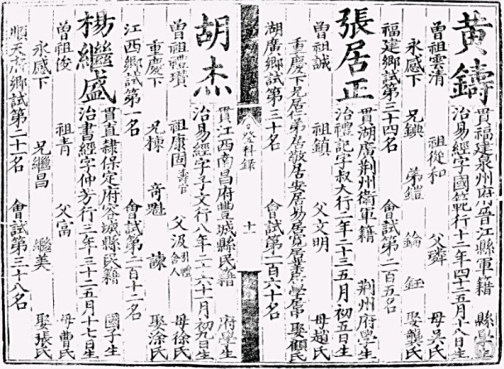 黃鑄
貫福建泉州府晉江縣軍籍 縣學生
治易經字國 行十二年四十二五月十八日生
曾祖雲清 祖從和 父璘 母吳氏
永感下 兄 弟鎧 鑰 鈺 娶龔氏
福建鄉試第三十四名 會試第二百五名
張居正
貫湖廣荊州衛軍籍 荊州府學生
治禮記字叔大行一年二十三五月初五日生
曾祖誠 祖鎮 父文明 母趙氏
重慶下 兄居仁 弟居敬居安居易居寬 娶顧氏
湖廣鄉試第三十名 會試第一百六十名
科錄 十一
胡杰
貫江西南昌府豐城縣民籍 府學生
治易經字子文行八年二十六十一月初一日生
曾祖禮瓚 祖康 父汲 母徐氏
重慶下 兄棟 奇魁 諫 娶涂氏
江西鄉試第一名 會試第二百十二名
楊繼盛
貫直隸保定府容城縣民籍 國子生
治書經字仲芳行三年三十二五月十七日生
曾祖俊 祖青 父富 母曹氏
永感下 兄繼昌 繼美 娶張氏
順天府鄉試第二十一名 會試第三十八名